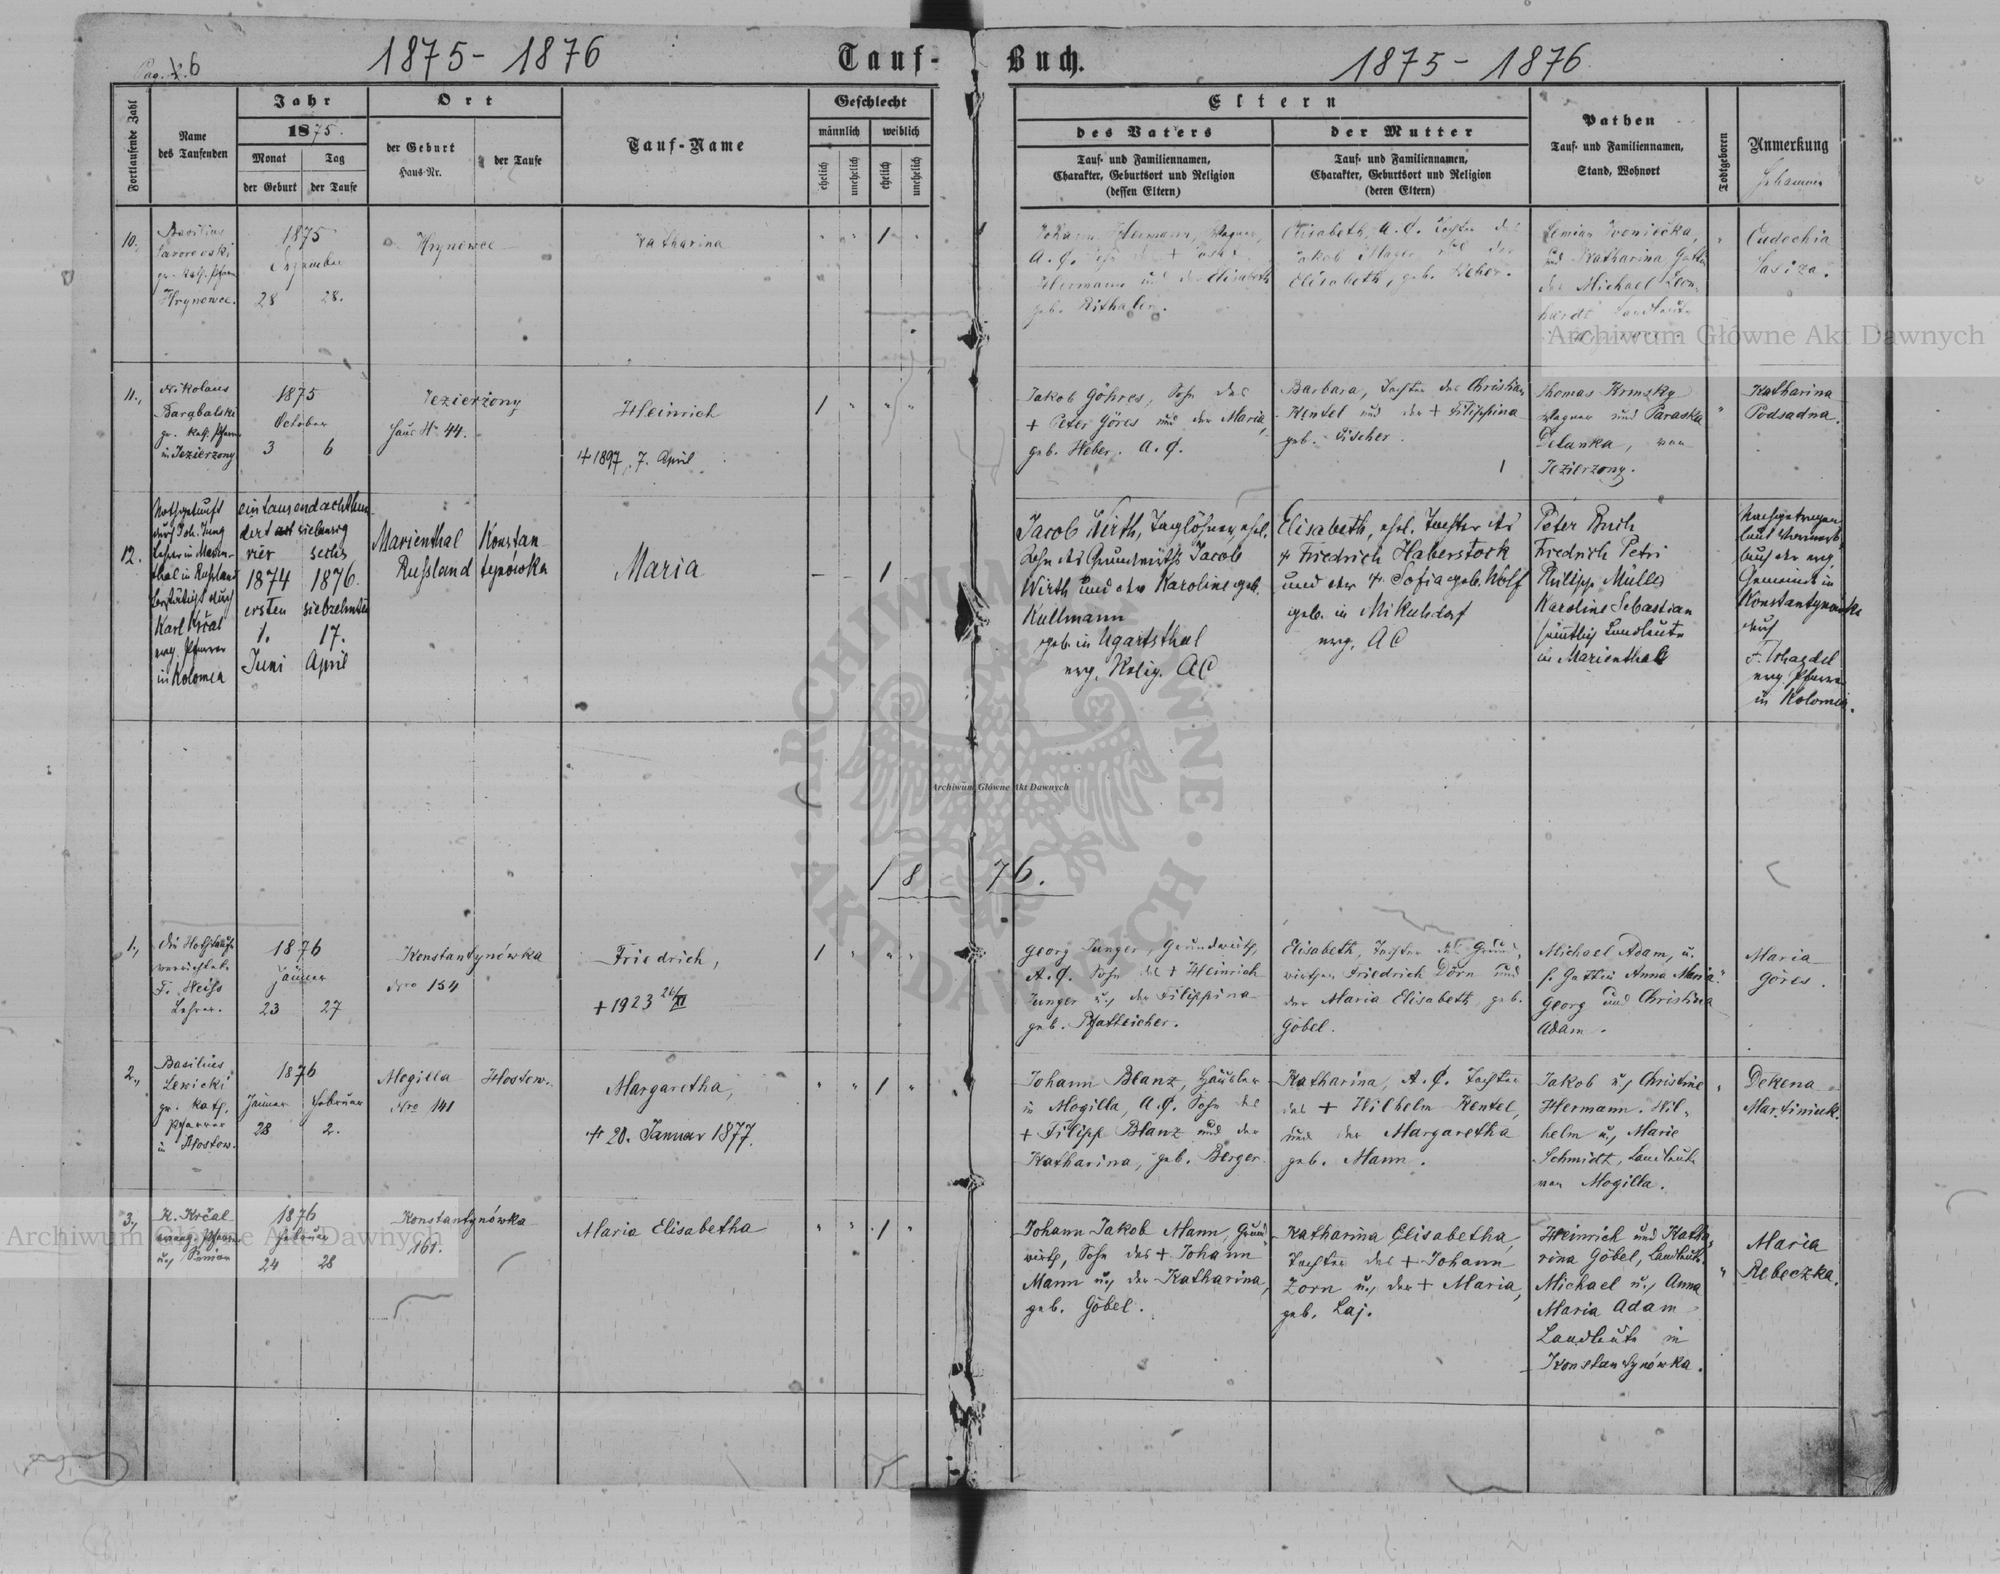 Pag. 6
1875 - 1876
Tauf-Buch.
1875 - 1876
Fortlaufende Zahl
Name
des Taufenden
Jahr
1875.
Monat
Tag
der Geburt
der Taufe
Ort
der Geburt
Haus-Nr.
der Taufe
Tauf-Name
Geschlecht
männlich
weiblich
ehelich
unehelich
ehelich
unehelich
Eltern
des Vaters
Tauf- und Familiennamen,
Charakter, Geburtsort und Religion
(dessen Eltern)
der Mutter
Tauf- und Familiennamen,
Charakter, Geburtsort und Religion
(deren Eltern)
Pathen
Tauf- und Familiennamen,
Stand, Wohnort
Todtgeboren
Anmerkung
10.,
Basilius
gr. kath. Pfarrer
Hrynowce.
1875
September
28 28.
Hrynowce
Katharina
" " 1 "
Johann Hermann, Wagner,
A. C. Sohn des +
Hermann und der Elisabeth
geb. Rithaler.
Elisabeth, A. C. Tochter des
Jakob Mager und der
Elisabeth, geb. Weber.
und Katharina Gattin
des Michael Leon-
hardt Landleute
Eudochia
11.,
Nikolaus
gr. kath. Pfarrer
in Jezierzony
1875
October
3 6
Jezierżony
Haus Nr. 44.
Heinrich
+ 1897, 7. April
1 " " "
Jakob Göhres, Sohn des
+ Peter Göres und der Maria,
geb. Weber. A. C.
Barbara, Tochter des Christian
Kentel und der + Filippina
geb. Fischer.
Thomas Krmsky
Wagner und Paraska
von
Jezierzony.
Katharina
Podsadna.
12.
Nothgetauft
durch Joh. Jung
Lehrer in Marien-
thal in Rußland
bestätigt durch
Karl Krčal
evg. Pfarrer
in Kolomea
eintausendachthun-
dert siebenzig
vier sechs
1874 1876.
ersten siebzehnten
1. 17.
Juni April
Marienthal
Rußland
Konstan-
tynówka
Maria
— — 1
Jacob Wirth, Taglöhner, ehel.
Sohn des Grundwirths Jacob
Wirth und der Karoline geb.
Kullmann
geb. in Ugartsthal
evg. Relig. AC
Elisabeth, ehel. Tochter des
+ Friedrich Haberstock
und der + Sofia geb. Wolf
geb. in Mikulsdorf
evg. AC
Peter Busch
Friedrich Petri
Philipp Müller
Karoline Sebastian
sämtlich Landleute
in Marienthal
Nachgetragen
laut
buch der evg.
Gemeinde in
Konstantynówka
durch
evg. Pfarrer
in Kolomea.
1876.
1.,
die Nothtaufe
verrichtete
F. Weiss
Lehrer.
1876
Jänner
23 27
Konstantynówka
Nro 154
Friedrich,
+ 1923 26/XI
1 " " "
Georg Junger, Grundwirth,
A. C. Sohn des + Heinrich
Junger u. der Filippina
geb. Pfatteicher.
Elisabeth, Tochter des Grund-
wirthen Friedrich Dörn und
der Maria Elisabeth, geb.
Göbel.
Michael Adam, u.
s. Gattin Anna Maria
Georg und Christina
Adam.
Maria
Göres.
2.,
Basilius
Lewicki
gr. kath.
Pfarrer
in Hostow.
1876
Jänner Februar
28 2.
Mogilla
Nro 141
Hostow.
Margaretha,
+ 20. Januar 1877.
" " 1 "
Johann Blanz, Häusler
in Mogilla, A. C. Sohn des
+ Filipp Blanz und der
Katharina, geb. Berger.
Katharina, A. C. Tochter
des + Wilhelm Kentel,
und der Margaretha
geb. Mann.
Jakob u. Christine
Hermann. Wil-
helm u. Marie
Schmidt, Landleute
von Mogilla.
Dekena
Martiniuk.
3.,
K. Krčal
evang. Pfarrer
u. Senior
1876
Februar
24 28
Konstantynówka
161.
Maria Elisabetha
" " 1 "
Johann Jakob Mann, Grund-
wirth, Sohn des + Johann
Mann u. der Katharina,
geb. Göbel.
Katharina Elisabetha,
Tochter des + Johann
Zorn u. der + Maria,
geb. Laj.
Heinrich und Katha-
rina Göbel, Landleute.
Michael u. Anna
Maria Adam
Landleute in
Konstantynówka.
Maria
Rebeczka.
Archiwum Główne Akt Dawnych
Archiwum Główne Akt Dawnych
Archiwum Główne Akt Dawnych
ARCHIWUM GŁÓWNE AKT DAWNYCH